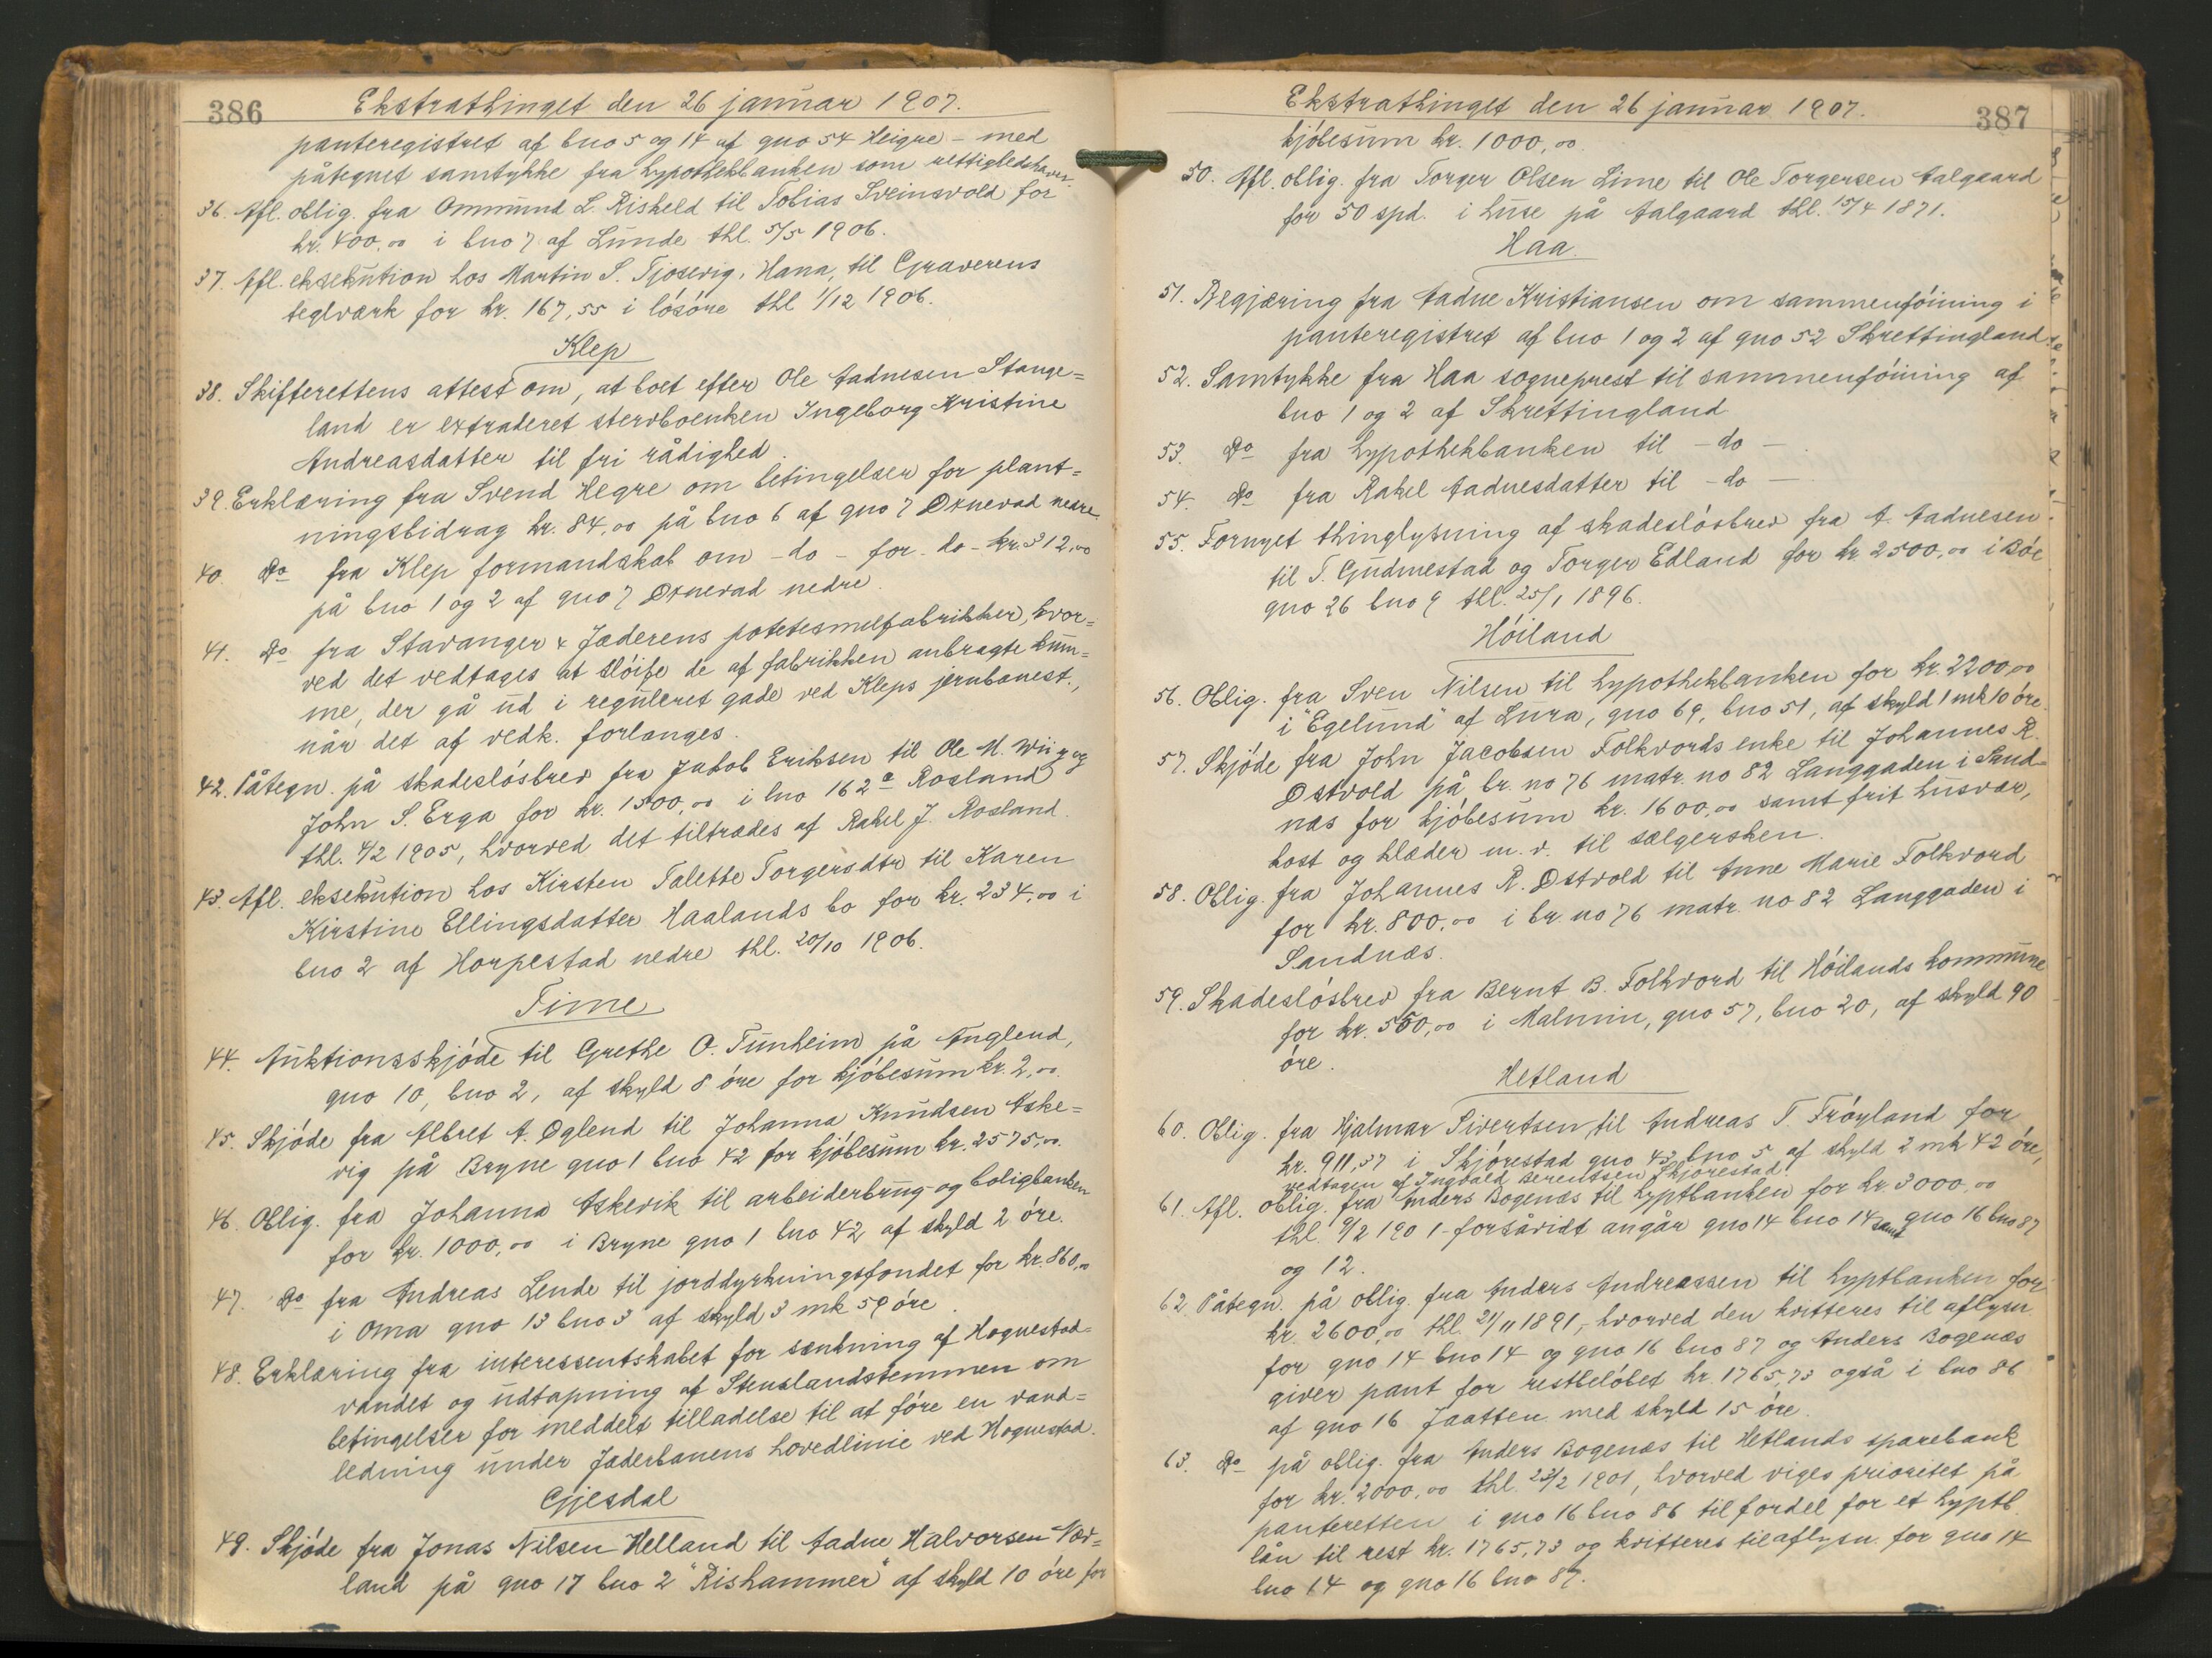 386
Ekstrathinget den 26 januar 1907.
panteregistret af bno 5 og 14 af gno 54 Heigre - med
påtegnet samtykke fra hypothekbanken som rettighedshaver.
36. Afl. oblig. fra Ommund L. Riskeld til Tobias Sveinsvold for
kr. 400,00 i bno 7 af Lunde thl. 5/5 1906.
37. Afl. eksekution hos Martin S. Tjosevig, Hana, til Graverens
teglværk for kr. 167,55 i lösöre thl 1/12 1906.
Klep
38. Skifterettens attest om, at boet efter Ole Aadnesen Stange=
land er extraderet stervboenken Ingeborg Kristine
Andreasdatter til fri rådighed.
39. Erklæring fra Svend Hegre om betingelser for plant=
ningsbidrag kr. 84,00 på bno 6 af gno 7 Ornevad nedre.
40. Do fra Klep formandskab om - do - for - do - kr. 312,00
på bno 1 og 2 af gno 7 Ornevad nedre.
41. Do fra Stavanger & Jæderens potetesmelfabrikker, hvor=
ved det vedtages at slöife de af fabrikken anbragte kum=
me, der gå ud i reguleret gade ved Kleps jernbanest.,
når det af vedk. forlanges.
42. Påtegn. på skadeslösbrev fra Jakob Eriksen til Ole M. Wiig og
John S. Erga for kr. 1500,00 i bno 162a Rosland
thl. 4/2 1905, hvorved det tiltrædes af Rakel J. Rosland.
43. Afl. eksekution hos Kirsten Talette Torgersdtr til Karen
Kirstine Ellingsdatter Haalands bo for kr. 234,00 i
bno 2 af Horpestad nedre thl. 20/10 1906.
Time
44. Auktionsskjöde til Grethe O. Tunheim på Anglend,
gno 10, bno 2, af skyld 8 öre for kjöbesum kr. 2,00.
45. Skjöde fra Albret A. Oglend til Johanna Knudsen Aske=
vig på Bryne gno 1 bno 42 for kjöbesum kr. 2575,00.
46. Oblig. fra Johanna Askevik til arbeiderbrug- og boligbanken
for kr. 1000,00 i Bryne gno 1 bno 42 af skyld 2 öre.
47. Do fra Andreas Lende til jorddyrkningsfondet for kr. 860,00
i Oma gno 13 bno 3 af skyld 3 mk 59 öre.
48. Erklæring fra interessentskabet for sænkning af Hognestad=
vandet og udtapning af Stenslandstemmen om
betingelser for meddelt tilladelse til at före en vand=
ledning under Jæderbanens hovedlinie ved Hognestad.
Gjesdal
49. Skjöde fra Jonas Nilsen Helland til Aadne Halvorsen Vær=
land på gno 17 bno 2 "Rishammer" af skyld 10 öre for
Ekstrathinget den 26 januar 1907.
387
kjöbesum kr. 1000,00
50. Afl. oblig. fra Torger Olsen Lime til Ole Torgersen Aalgaard
for 50 spd. i huse på Aalgaard thl. 15/4 1871.
Haa.
51. Begjæring fra Aadne Kristiansen om sammenföining i
panteregistret af bno 1 og 2 af gno 52 Skrettingland.
52. Samtykke fra Haa sogneprest til sammenföining af
bno 1 og 2 af Skrettingland
53. Do fra hypothekbanken til - do -
54. Do fra Rakel Aadnesdatter til - do -
55. Fornyet thinglysning af skadeslösbrev fra A. Aadnesen
til T. Gudmestad og Torger Edland for kr. 2500,00 i Böe
gno 26 bno 9 thl. 25/1 1896.
Höiland
56. Oblig. fra Sven Nilsen til hypothekbanken for kr. 2200,00
i "Egelund" af Lura, gno 69, bno 51, af skyld 1 mk 10 öre.
57. Skjöde fra John Jacobsen Folkvords enke til Johannes R.
Ostvold på br. no 76 matr. no 82 Langgaden i Sand=
næs for kjöbesum kr. 1600,00 samt frit husvær,
kost og klæder m. v. til sælgersken.
58. Oblig. fra Johannes R. Ostvold til Anne Marie Folkvord
for kr. 800,00 i br. no 76 matr. no 82 Langgaden i
Sandnæs.
59. Skadeslösbrev fra Bernt B. Folkvord til Höilands kommune
for kr. 550,00 i Malmin, gno 57, bno 20, af skyld 90
öre.
Hetland
60. Oblig. fra Hjalmar Sivertsen til Andreas T. Fröyland for
kr. 911,37 i Skjörestad gno 43, bno 5 af skyld 2 mk 42 öre,
vedtagen af Ingvald Berentsen Skjörestad.
61. Afl. oblig. fra Anders Bogenæs til hyptbanken for kr. 3000,00
thl. 9/2 1901 - forsåvidt angår gno 14 bno 14 samt gno 16 bno 87
og 12.
62. Påtegn. på oblig. fra Anders Andreassen til hyptbanken for
kr. 2600,00 thl. 21/11 1891, - hvorved den kvitteres til aflysn
for gno 14 bno 14 og gno 16 bno 87 og Anders Bogenæs
giver pant for restbelöbet kr. 1765,73 også i bno 86
af gno 16 Jaatten med skyld 15 öre.
63. Do på oblig. fra Anders Bogenæs til Hetlands sparebank
for kr. 2000,00 thl. 23/2 1901, hvorved viges prioritet på
panteretten i gno 16 bno 86 til fordel for et hyptb.
lån til rest kr. 1765,73 og kvitteres til aflysn. for gno 14
bno 14 og gno 16 bno 87.